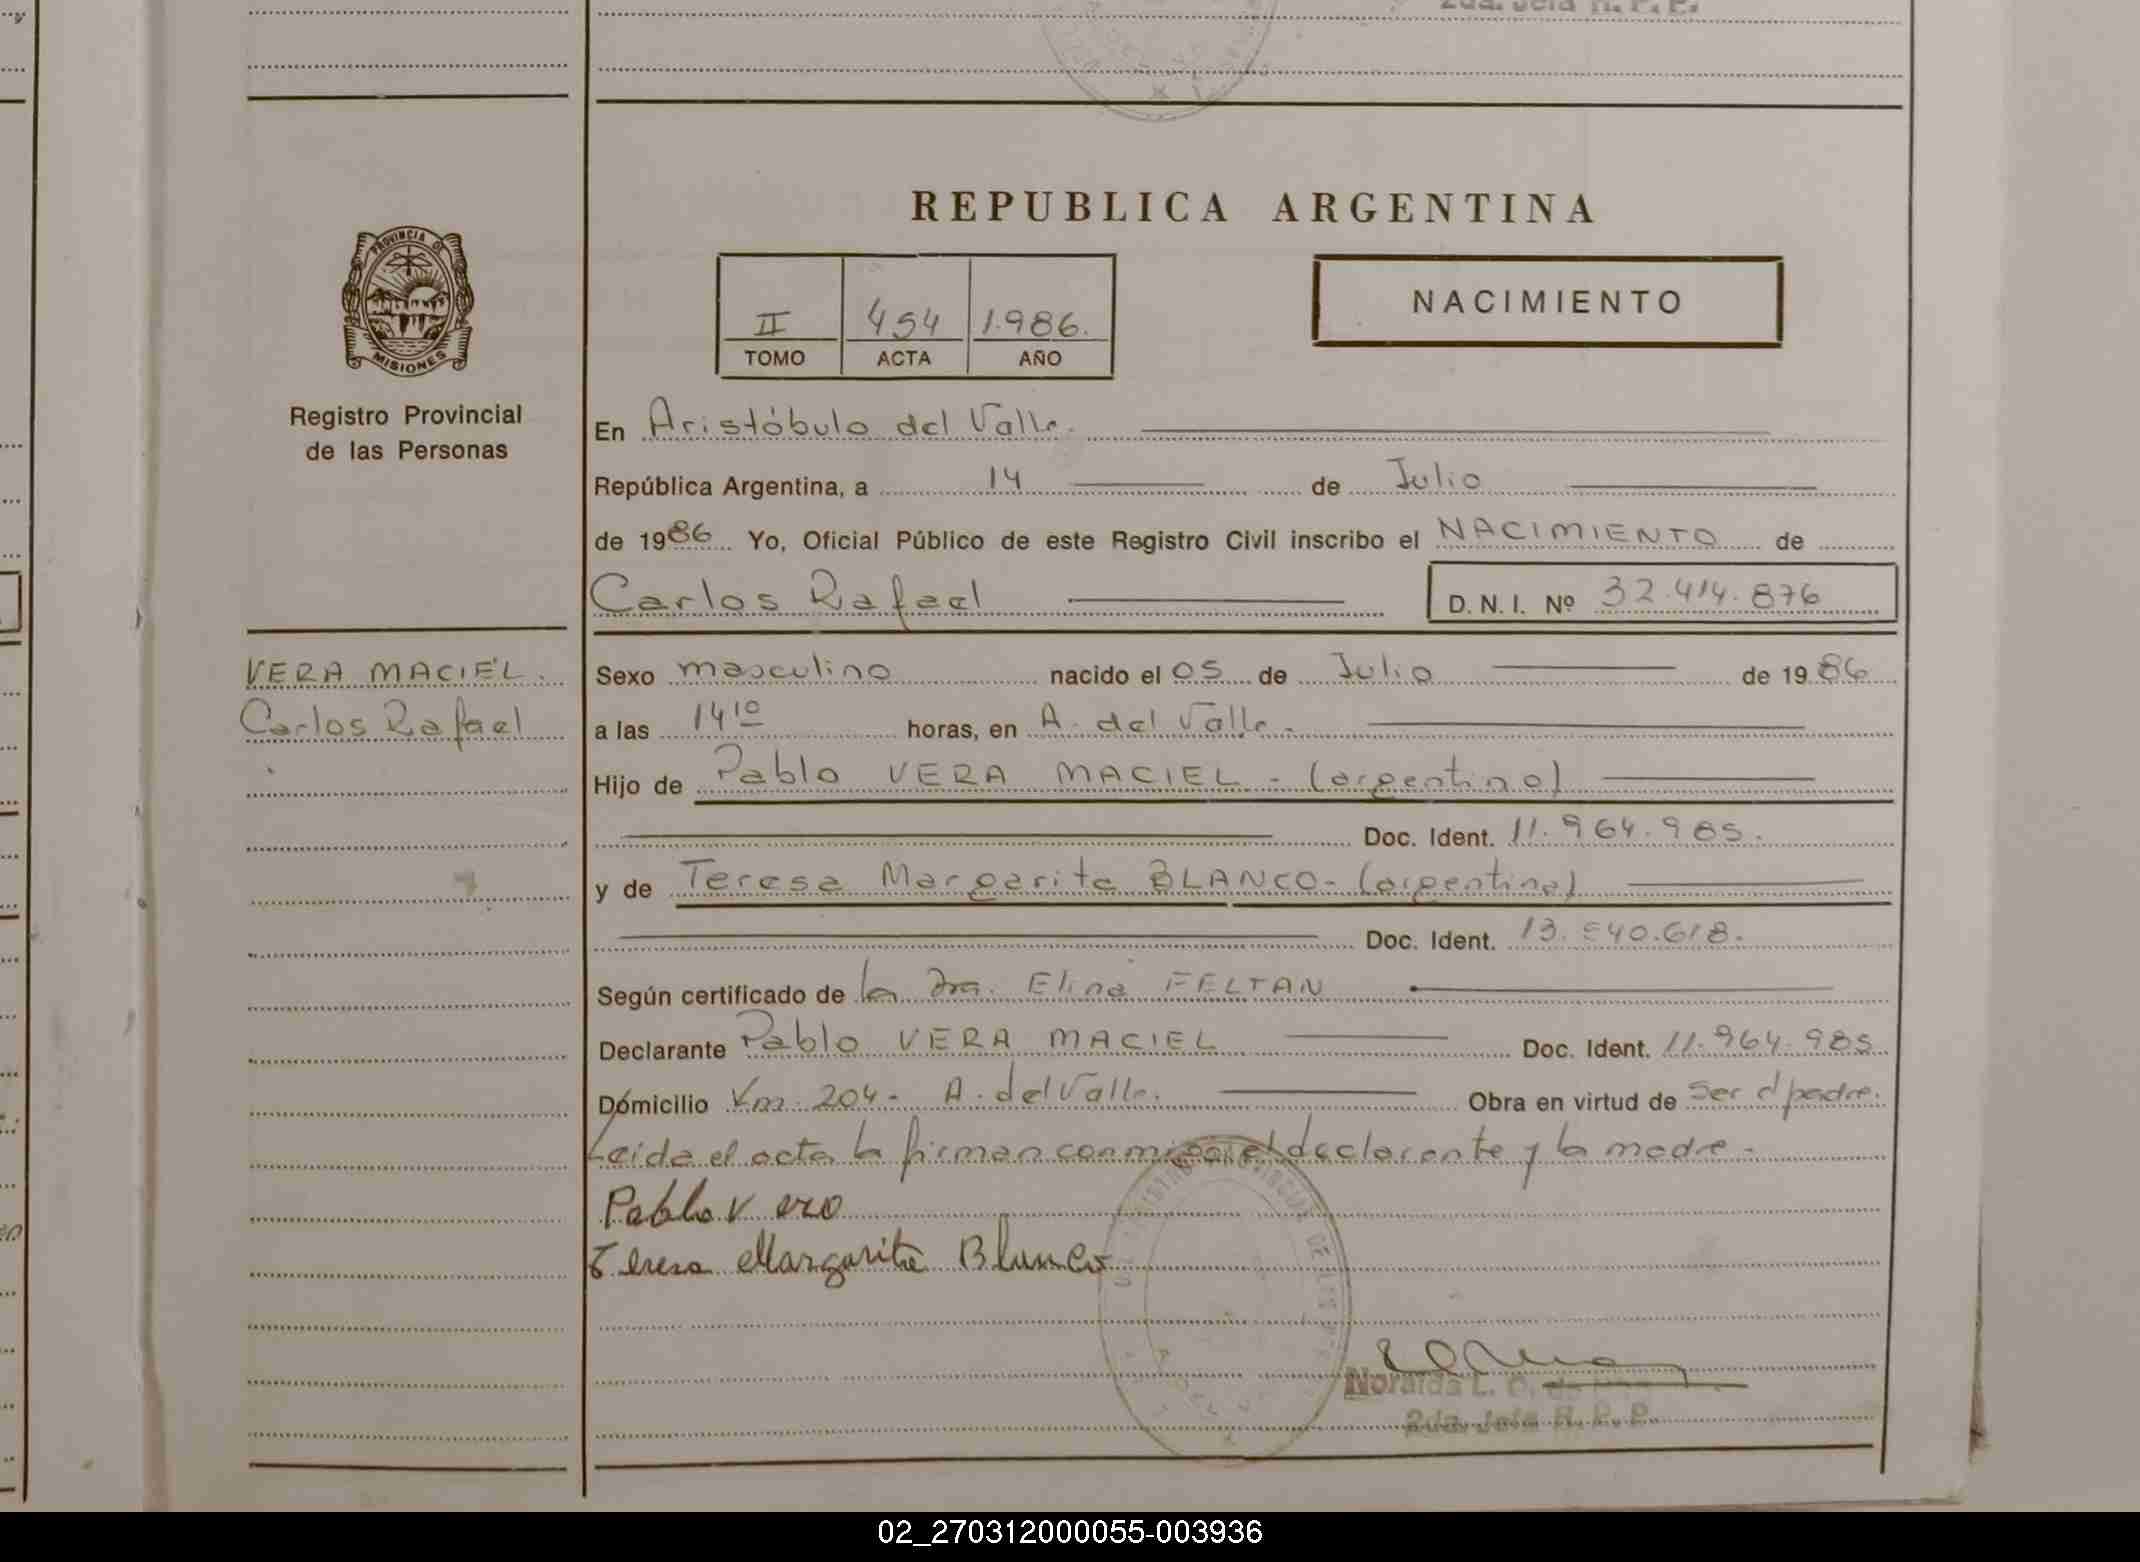 2da. Jefa R. P. P.
REPUBLICA ARGENTINA
PROVINCIA DE
MISIONES
II 454 1.986.
TOMO ACTA AÑO
NACIMIENTO
Registro Provincial
de las Personas
En Aristóbulo del Valle.
República Argentina, a 14 de Julio
de 1986 Yo, Oficial Público de este Registro Civil inscribo el NACIMIENTO de
Carlos Rafael D. N. I. Nº 32.414.876
VERA MACIEL.
Carlos Rafael
Sexo masculino nacido el 05 de Julio de 1986
a las 14 10 horas, en A. del Valle -
Hijo de Pablo VERA MACIEL - (argentino)
Doc. Ident. 11.964.985.
y de Teresa Margarita BLANCO - (argentina)
Doc. Ident. 13.540.618.
Según certificado de la Dra. Elina FELTAN
Declarante Pablo VERA MACIEL Doc. Ident. 11.964.985
Domicilio Km. 204 - A. del Valle. Obra en virtud de ser el padre.
Leida el acta la firman conmigo el declarante y la madre -
Pablo Vera
Teresa Margarita Blanco
Noraida L.
2da. Jefa R. P. P.
02_270312000055-003936